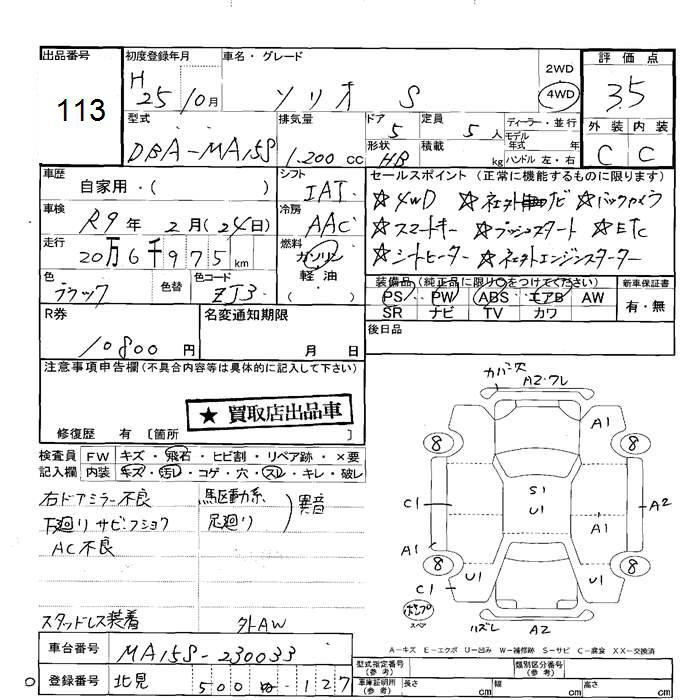 出品番号
113
初度登録年月
H 25 10月
車名・グレード
ソリオ S
2WD
4WD
評価点
3.5
外装 内装
C C
型式
DBA-MA15S
排気量
1.200 cc
ドア
5
定員
5人
形状
HB
積載
kg
ディーラー・並行
モデル
年式 年
ハンドル 左・右
車歴
自家用・( )
シフト
IAT
セールスポイント (正常に機能するものに限ります)
☆4WD ☆社外ナビ ☆バックカメラ
☆スマートキー ☆プッシュスタート ☆ETC
☆シートヒーター ☆社外エンジンスターター
車検
R9年 2月(24日)
冷房
AAC
走行
20万6千975km
燃料
ガソリン
軽油
色
ブラック
色替
色コード
ZJ3
装備品(純正品に限り○をつけてください)
PS PW ABS エアB AW
SR ナビ TV カワ
新車保証書
有・無
R券
10800円
名変通知期限
月 日
後日品
注意事項申告欄(不具合内容等は具体的に記入して下さい)
★買取店出品車
修復歴 有 〔箇所 〕
検査員 FW キズ・飛石・ヒビ割・リペア跡・×要
記入欄 内装 キズ・汚レ・コゲ・穴・スレ・キレ・破レ
右ドアミラー不良
下廻リサビ・フショク
AC不良
駆動系
足廻り
異音
スタッドレス装着
外AW
カバーズレ
A2・ワレ
A1
8
8
C1
S1
U1
A1
A2
A1
8
8
C1
U1
U1
ポンプ
スペア
ハズレ
A2
A-キズ E-エクボ U-凹み W-補修跡 S-サビ C-腐食 XX-交換済
車台番号
MA15S-230033
登録番号
北見 500 ゆ -127
型式指定番号
(参考)
類別区分番号
(参考)
車庫証明用
(参考)
長さ cm
幅 cm
高さ cm